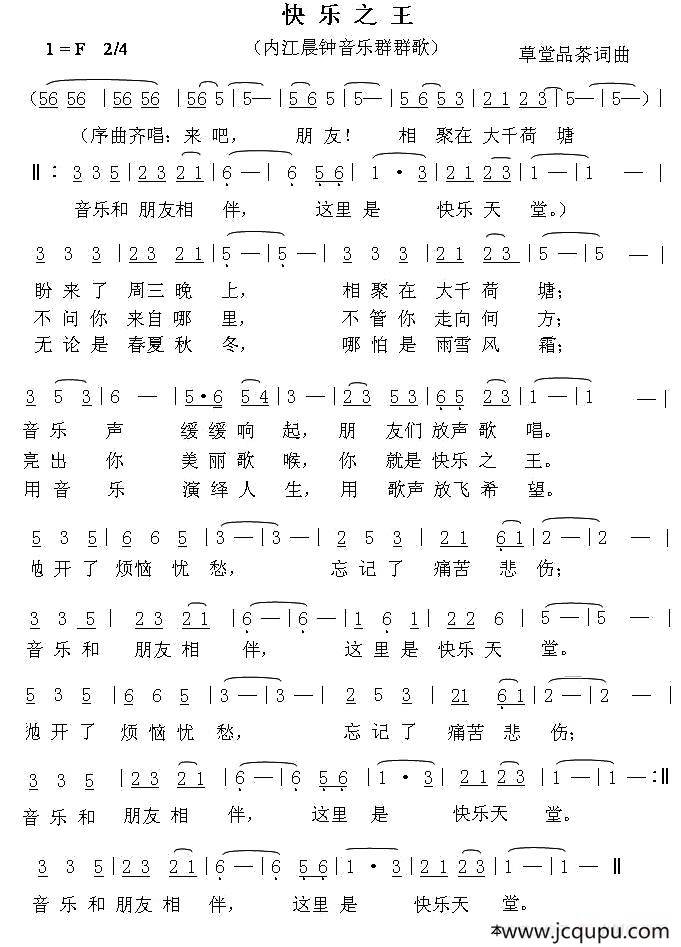 快乐之王
1=F 2/4 （内江晨钟音乐群群歌） 草堂品茶词曲
（56 56 |56 56 |56 5|5—|5 6 5|5—|6 5 5 3|21 23|5—|5—）|
（序曲齐唱：来吧， 朋友！ 相聚在大千荷塘
‖：3 3 5|2 3 2 1|6 —|6 5 6|1 · 3|21 23|1 —|1 —|
音乐和朋友相伴， 这里是 快乐天堂。）
3 3 3|2 3 2 1|5 —|5 —|3 3 3|2 1 2 3|5 —|5 —|
盼来了 周三晚上， 相聚在 大千荷塘；
不问你 来自哪里， 不管你 走向何方；
无论是 春夏秋冬， 哪怕是 雨雪风霜；
3 5 3|6 —|5·6 5 4|3 —|2 3 5 3|6 5 2 3|1 —|1 —|
音乐声 缓缓响起， 朋友们放声歌唱。
亮出你 美丽歌喉， 你就是快乐之王。
用音乐 演绎人生， 用歌声放飞希望。
5 3 5|6 6 5|3 —|3 —|2 5 3|2 1 6 1|2 —|2 —|
抛开了烦恼忧愁， 忘记了 痛苦悲伤；
3 3 5|2 3 2 1|6 —|6 —|1 6 1|2 2 6|5 —|5 —|
音乐和 朋友相伴， 这里是快乐天堂。
5 3 5|6 6 5|3 —|3 —|2 5 3|21 6 1|2 —|2 —|
抛开了 烦恼忧愁， 忘记了 痛苦悲伤；
3 3 5|2 3 2 1|6 —|6 5 6|1 · 3|2 1 2 3|1 —|1 —:‖
音乐和 朋友相伴， 这里是 快乐天堂。
3 3 5|2 3 2 1|6 —|6 5 6|1 · 3|21 23|1 —|1 — ‖
音乐和朋友相伴， 这里是 快乐天堂。
本www.jcqupu.com